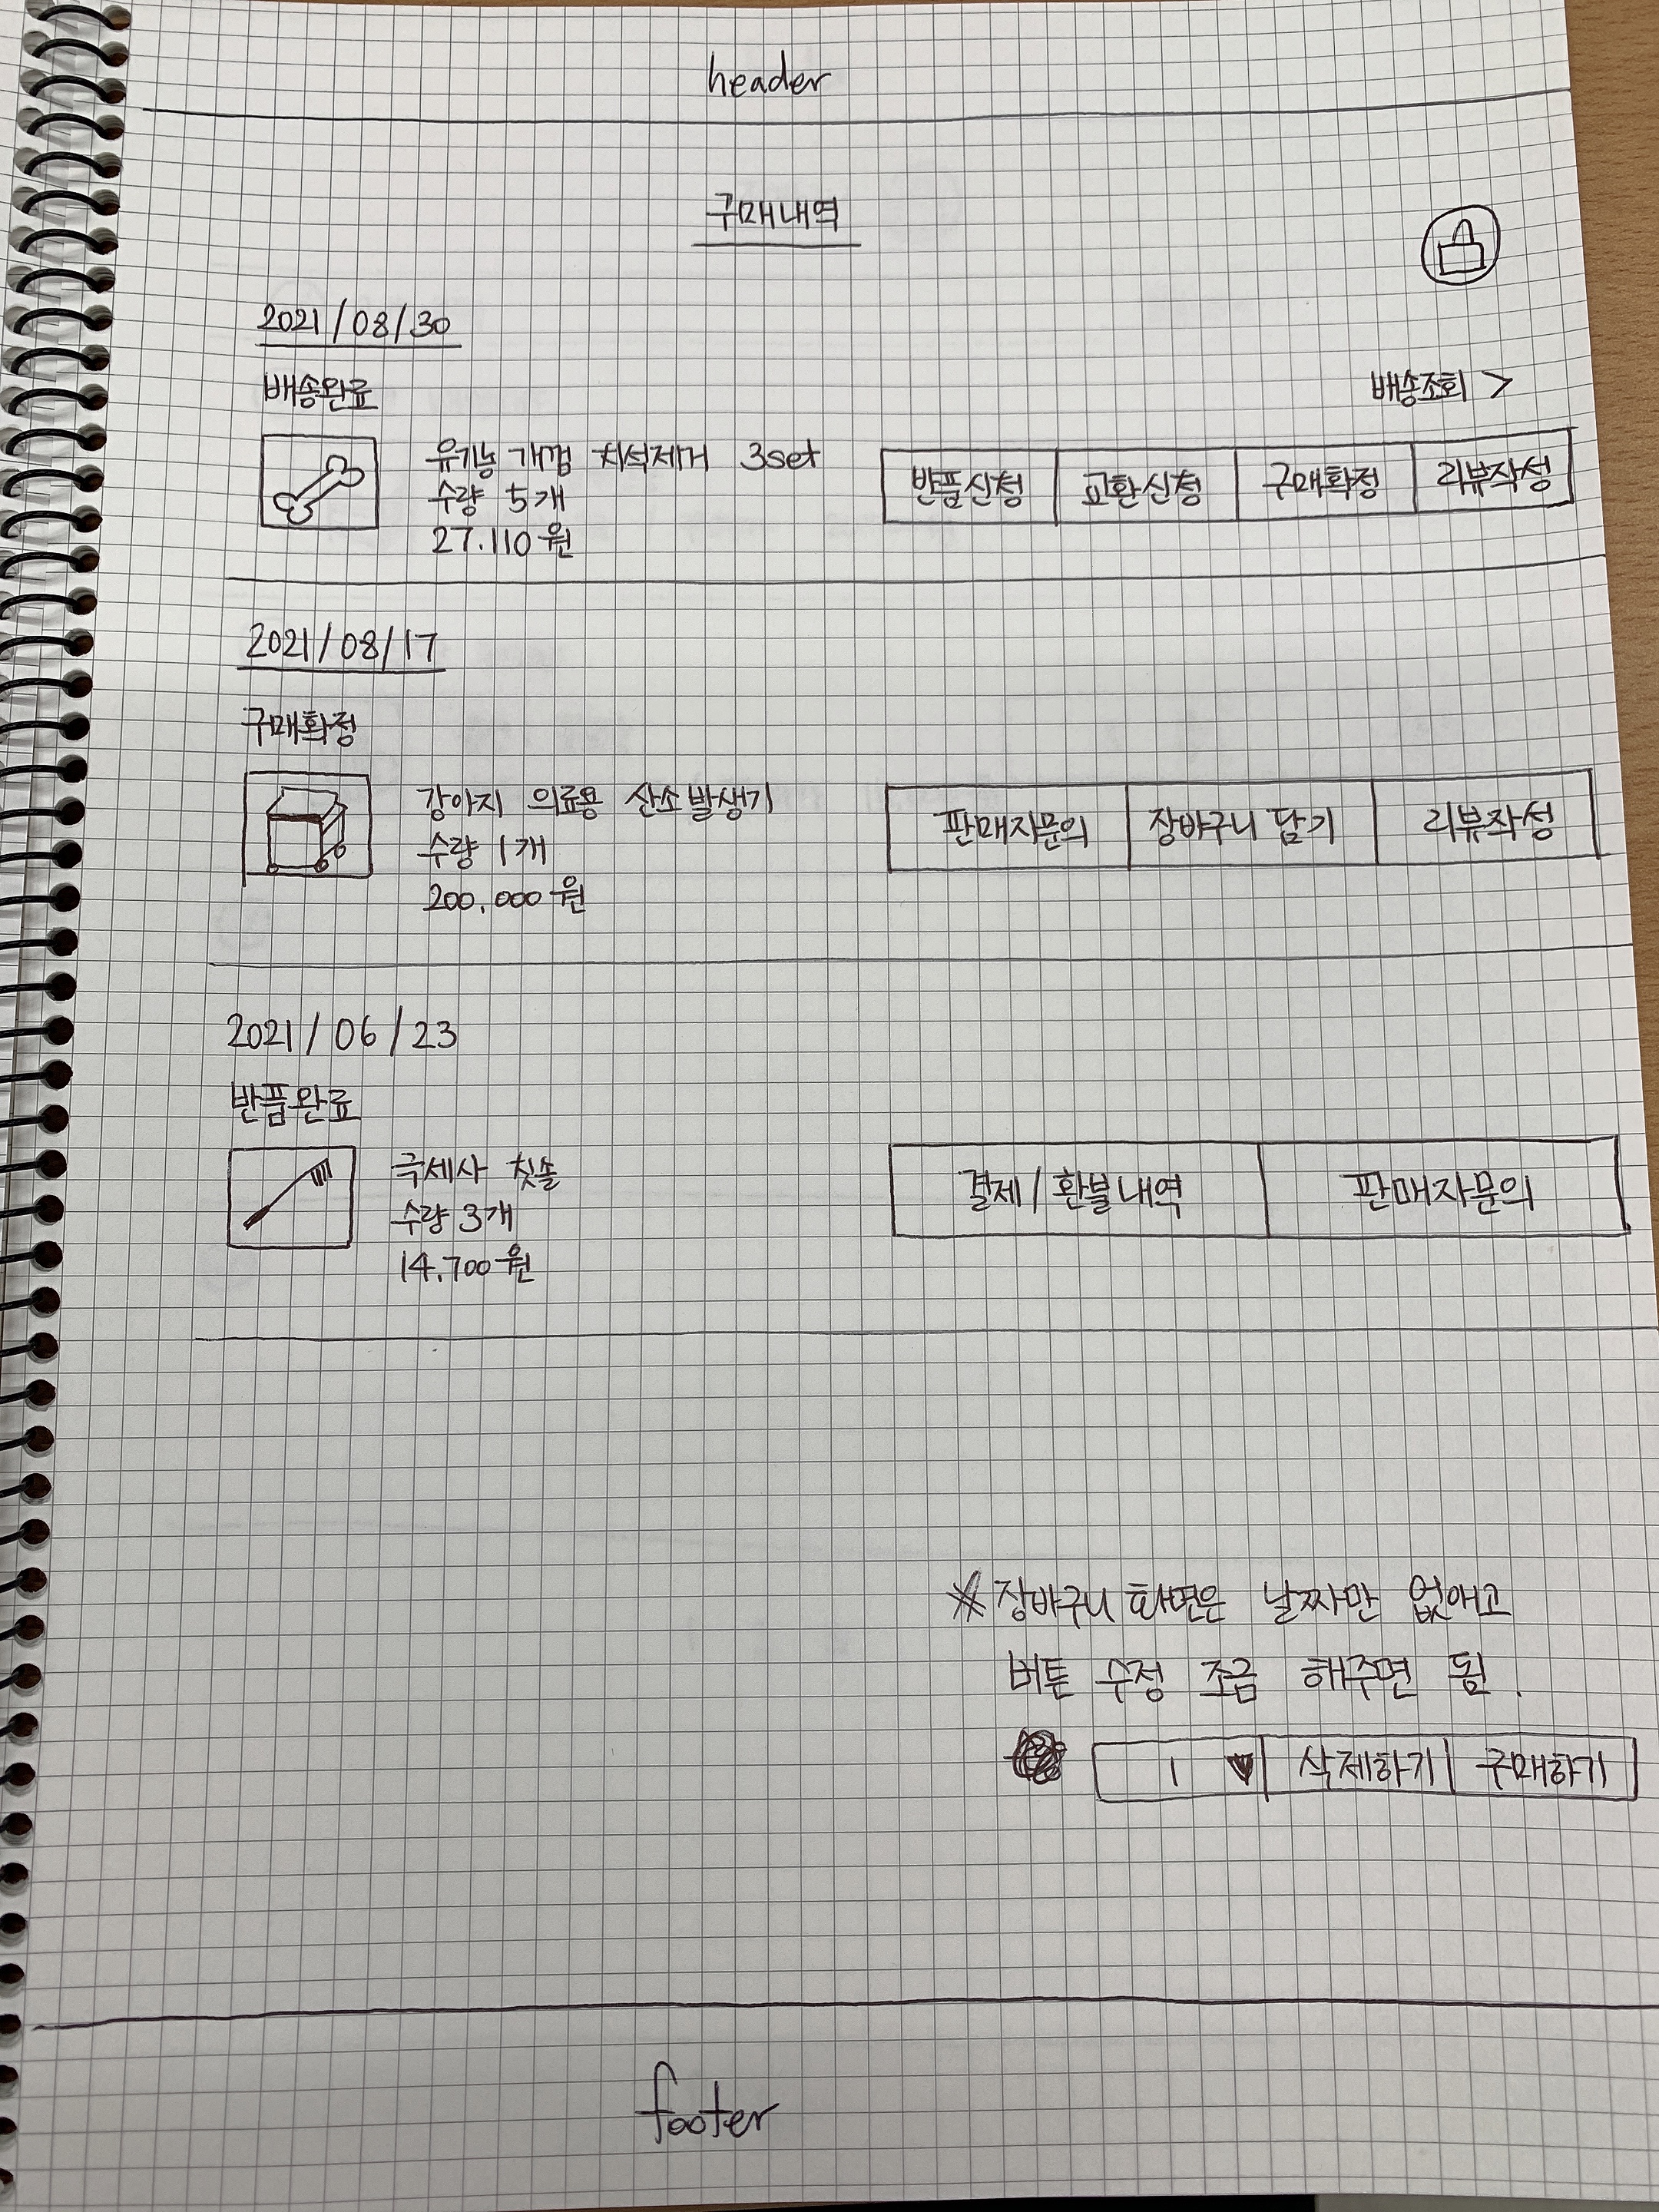 header
구매내역
2021/08/30
배송완료
배송조회 >
유기농 개껌 치석제거 3set
수량 5개
27.110원
반품신청 교환신청 구매확정 리뷰작성
2021/08/17
구매확정
강아지 의료용 산소발생기
수량 1개
200.000원
판매자문의 장바구니 담기 리뷰작성
2021/06/23
반품완료
극세사 칫솔
수량 3개
14.700원
결제/환불내역 판매자문의
※ 장바구니 화면은 날짜만 없애고
버튼 수정 조금 해주면 됨.
1 ▼ 삭제하기 구매하기
footer